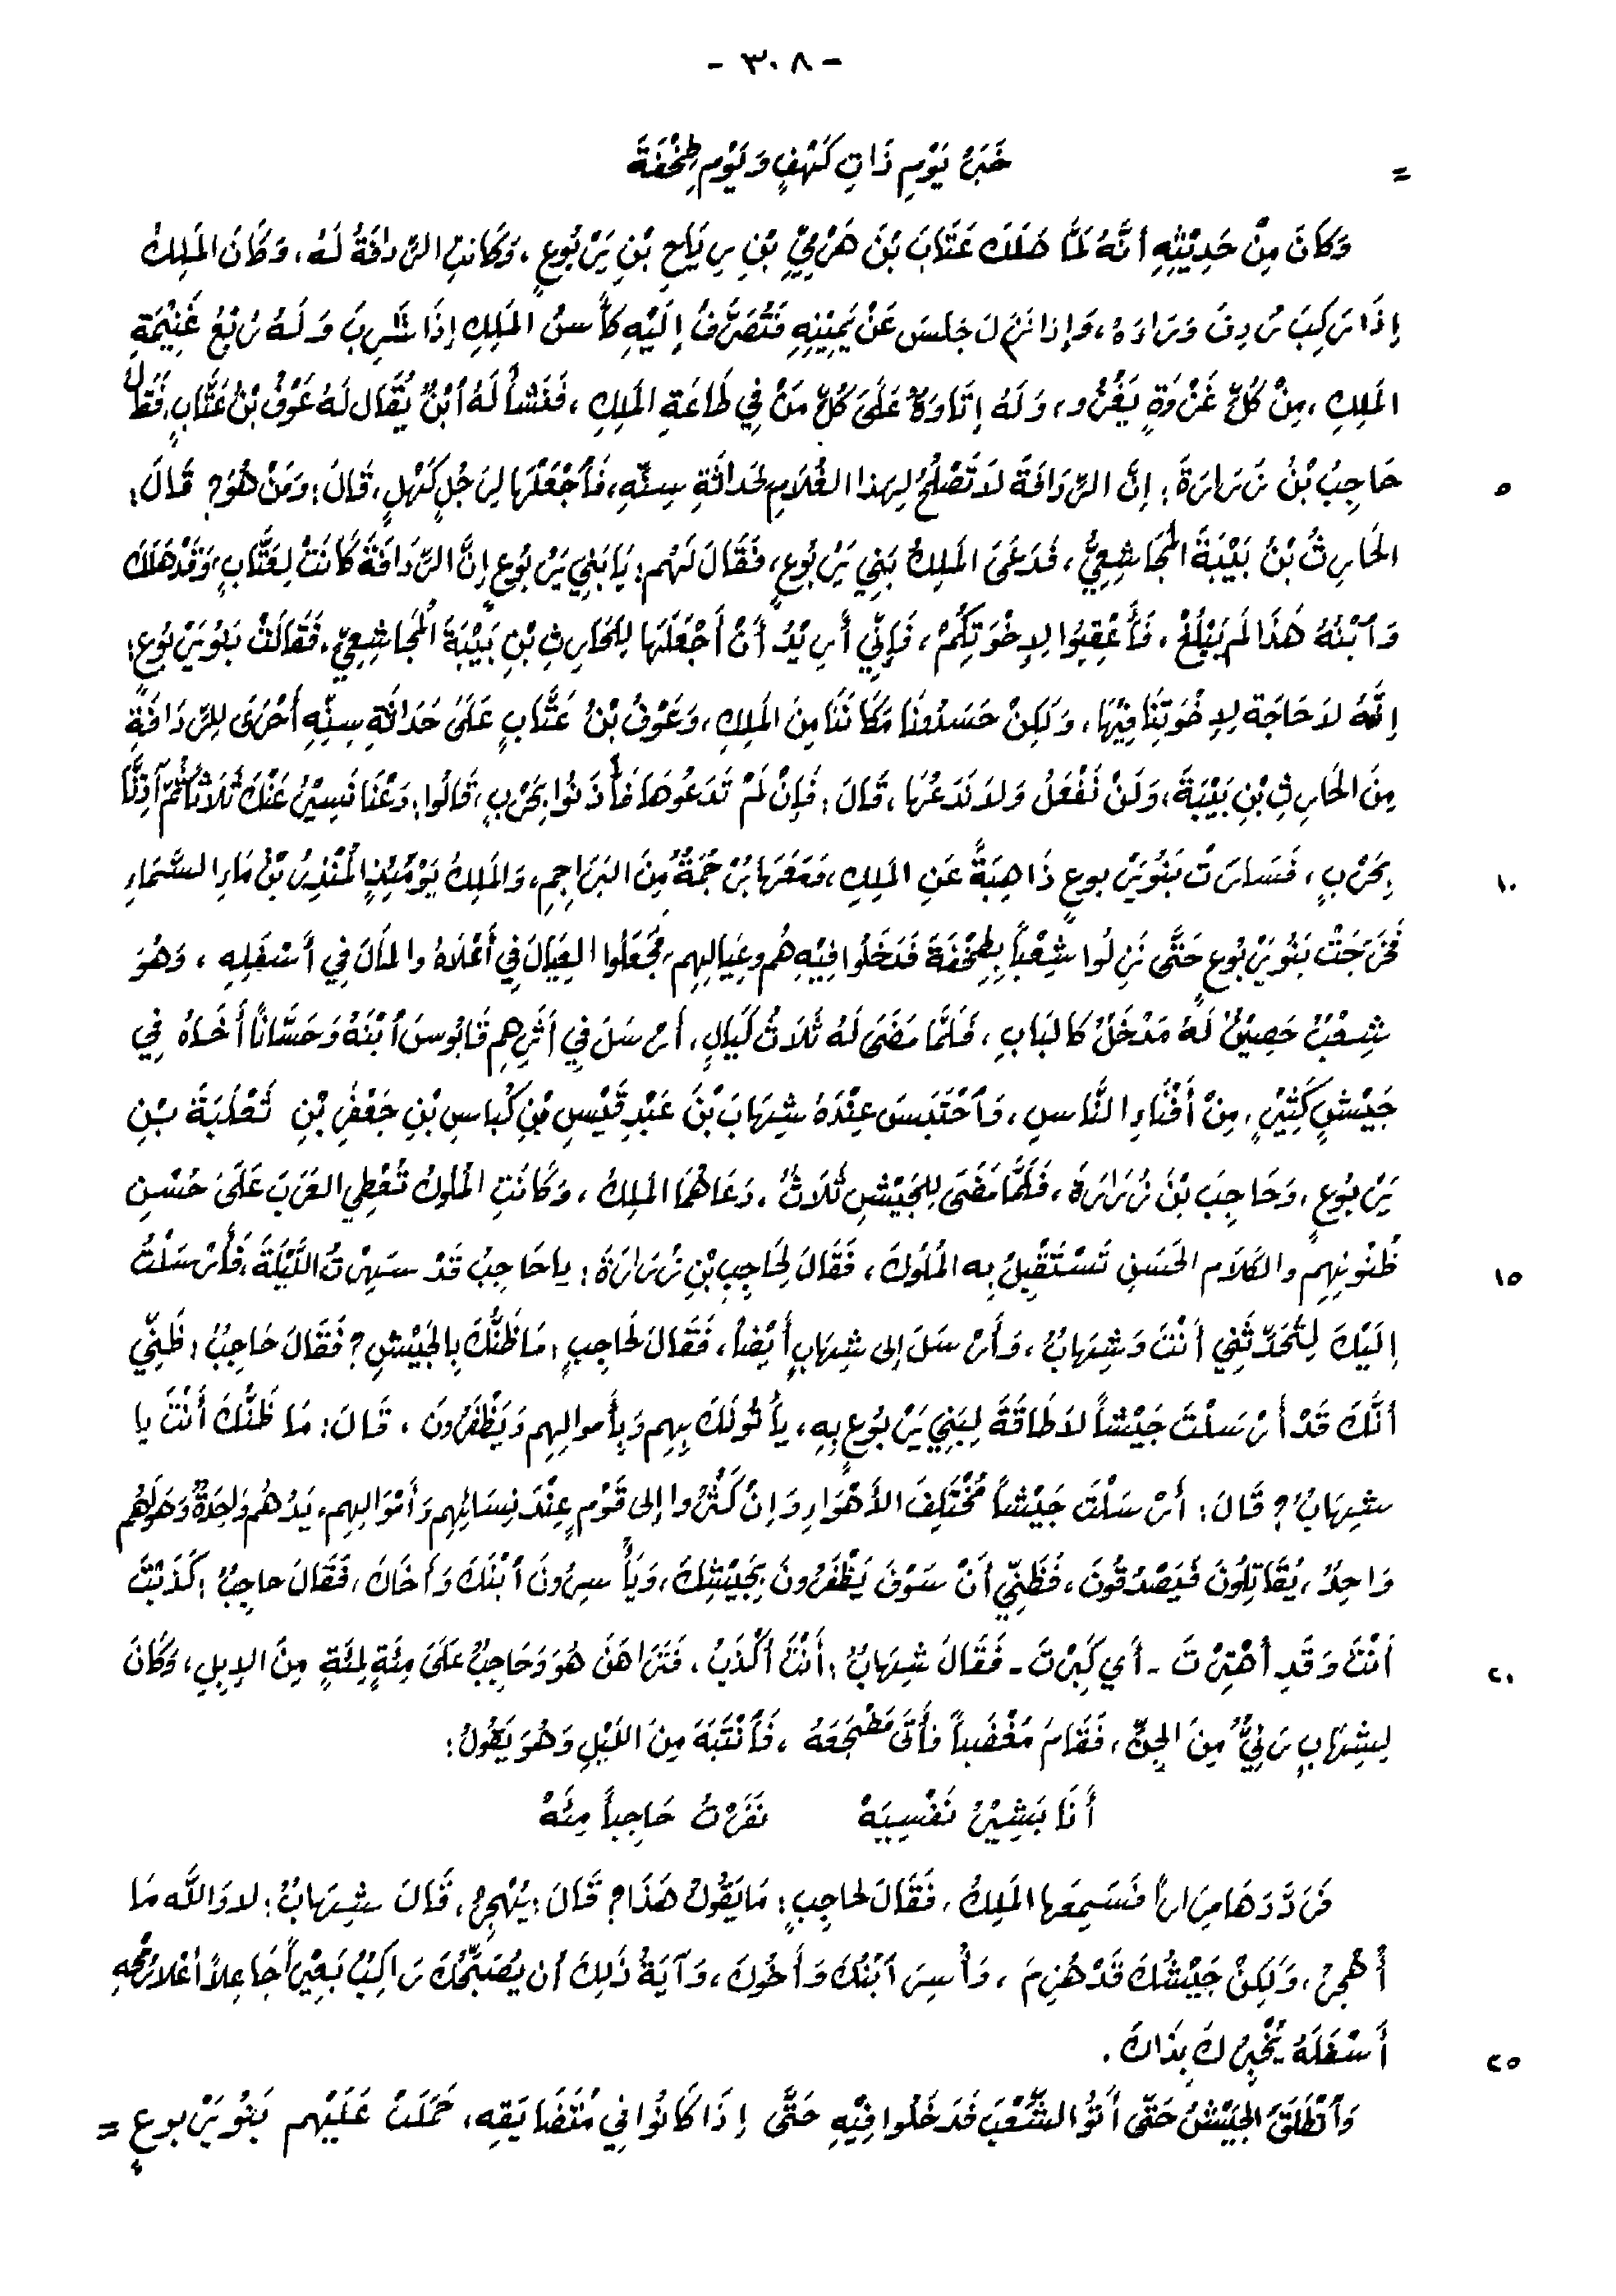 - ٣٠٨ -
= خَبَرُ يَوْمِ ذَاتِ كَهْفٍ وَيَوْمِ طِخْفَةَ
وَكَانَ مِنْ حَدِيْثِهِ أَنَّهُ لَمَّا هَلَكَ عَتَّابُ بْنُ هَرْمِيِّ بْنِ رِيَاحِ بْنِ يَرْبُوعٍ، وَكَانَتِ الرِّدَافَةُ لَهُ، وَكَانَ المَلِكُ
إِذَا رَكِبَ رَدِفَ وَرَاءَهُ، وَإِذَا نَزَلَ جَلَسَ عَنْ يَمِيْنِهِ فَتُصَرَّفُ إِلَيْهِ كَأْسُ المَلِكِ إِذَا شَرِبَ وَلَهُ رُبْعُ غَنِيْمَةِ
المَلِكِ، مِنْ كُلِّ غَزْوَةٍ يَغْزُو، وَلَهُ إِتَاوَةٌ عَلَىَ كُلِّ مَنْ فِي طَاعَةِ المَلِكِ، فَنَشَأَ لَهُ ٱبْنٌ يُقَال لَهُ عَوْفُ بْنُ عَتَّابٍ، فَقَالَ
٥ حَاجِبُ بْنُ زَرَارَةَ: إِنَّ الرِّدَافَةَ لاَ تَصْلُحُ لِهذا الغُلاَمِ لِحَدَاثَةِ سِنِّهِ، فَٱجْعَلْهَا لِرَجُلٍ كَهْلٍ، قَالَ: وَمَنْ هُوَ؟ قَالَ:
الحَارِثُ بْنُ بَيْبَةَ المُجَاشِعِيُّ، فَدَعَىَ المَلِكُ بَنِي يَرْبُوعٍ، فَقَالَ لَهُم: يَا بَنِي يَرْبُوعٍ إِنَّ الرِّدَافَةَ كَانَتْ لِعَتَّابٍ، وَقَدْ هَلَكَ
وَٱبْنُهُ هَذَا لَم يَبْلُغْ، فَأَعْقِبُوا لإِخْوَتِكُمْ، فَإِنِّي أُرِيْدُ أَنْ أَجْعَلَهَا لِلحَارِثِ بْنِ بَيْبَةَ المُجَاشِعِيِّ، فَقَالَتْ بَنُو يَرْبُوعٍ:
إِنَّهُ لاَ حَاجَة لإِخْوَتِنَا فِيْهَا، وَلَكِنْ حَسَدُونَا مَكَانَنَا مِنَ المَلِكِ، وَعَوْفُ بْنُ عَتَّابٍ عَلَىَ حَدَاثَةِ سِنِّهِ أَحْرَىَ لِلرِّدَافَةِ
مِنَ الحَارِثِ بْنِ بَيْبَةَ، وَلَنْ نَفْعَلَ وَلاَ نَدَعُهَا، قَالَ: فَإِنْ لَمْ تَدَعُوهَا فَأْذَنُوا بِحَرْبٍ، قَالُوا: دَعْنَا نَسِيْرُ عَنْكَ ثَلاَثاً ثُمَّ آذِنَّا
١٠ بِحَرْبٍ، فَسَارَتْ بَنُو يَرْبوعٍ ذَاهِبَةً عَنِ المَلِكِ، وَمَعَهَا بُرْجُمَةٌ مِنَ البَرَاجِمِ، وَالمَلِكُ يَوْمَئِذٍ المُنْذِرُ بْنُ مَاءِ السَّمَاءِ
فَخَرَجَتْ بَنُو يَرْبُوعٍ حَتَّى نَزَلُوا شِعْباً بِطِخْفَةَ فَدَخَلُوا فِيْهِ هُم وعِيَالِهِم، فَجَعَلُوا العِيَالَ فِي أَعْلاَهُ والمَالَ فِي أَسْفَلِهِ، وَهُوَ
شِعْبٌ حَصِيْنٌ لَهُ مَدْخَلٌ كَالبَابِ، فَلَمَّا مَضَىَ لَهُ ثَلاَثُ لَيَالٍ، أَرْسَلَ فِي أَثَرِهِم قَابُوسَ ٱبْنَهُ وَحَسَّانًا أَخَاهُ فِي
جَيْشٍ كَثِيْرٍ، مِنْ أَفْنَاءِ النَّاسِ، وَٱحْتَبَسَ عِنْدَهُ شِهَابَ بْنَ عَبْدِ قَيْسِ بْنِ كُبَاسِ بْنِ جَعْفَرِ بْنِ ثَعْلَبَةَ بْنِ
يَرْبوعٍ، وَحَاجِبَ بْنَ زُرَارَةَ، فَلَمَّا مَضَىَ لِلجَيْشِ ثَلاَثٌ، دَعَاهُمَا المَلِكُ، وَكَانَتِ المُلُوكُ تُعْطِي العَرَبَ عَلَىَ حُسْنِ
١٥ ظُنُونِهِم والكَلاَم الحَسَنِ تَسْتَقْبِلُ به المُلُوكَ، فَقَالَ لِحَاجِبِ بْنِ زُرَارَةَ: يا حَاجِبُ قَدْ سَهِرْتُ اللَّيْلَةَ، فَأَرْسَلْتُ
إِلَيْكَ لِتُحَدِّثَنِي أَنْتَ وَشِهَابٌ، وَأَرْسَلَ إلى شِهَابٍ أَيْضاً، فَقَالَ لحَاجِبٍ: مَا ظَنُّكَ بِالجَيْشِ؟ فَقَالَ حَاجِبُ: ظَنِّي
أَنَّكَ قَدْ أَرْسَلْتَ جَيْشاً لاَ طَاقَةَ لِبَنِي يَرْبُوعٍ بِهِ، يَأْتُونَكَ بِهِم وَبِأَموالِهِم وَيَظْفَرُونَ، قَالَ: مَا ظَنُّكَ أَنْتَ يا
شِهَابُ؟ قَالَ: أَرْسَلْتَ جَيْشاً مُخْتَلِفَ الأَهْوَاءِ وَإِنْ كَثُرُوا إلى قَوْمٍ عِنْدَ نِسَائِهِم وَأَمْوَالِهِم، يَدُهُم وَاحِدَةٌ وَهَوَاهُم
وَاحِدٌ، يُقَاتِلُونَ فَيَصْدُقُونَ، فَظَنِّي أَنْ سَوْفَ يَظْفَرُونَ بِجَيْشِكَ، وَيَأْسِرُونَ ٱبْنَكَ وَأَخَاكَ، فَقَالَ حاجِبٌ: كَذَبْتَ
٢٠ أَنْتَ وَقَدِ أُهْتِرْتَ - أَي كَبِرْتَ - فَقَالَ شِهَابٌ: أَنْتَ أَكْذَبُ، فَتَرَاهَنَ هُوَ وَحَاجِبٌ عَلَىَ مِئَةٍ لِمِئَةٍ مِنَ الإِبِلِ، وَكَانَ
لِشِهَابٍ رَئِيٌّ مِنَ الجِنِّ، فَقَامَ مَغْضَباً فأَتَىَ مَضْجَعَهُ، فَٱنْتَبَهَ مِنَ اللَيْلِ وَهُوَ يَقُولُ:
أَنَا بَشِيْرُ نَفْسِيَهْ نَفَرْتُ حَاجِباً مِئَهْ
فَرَدَّدَهَا مِرَاراً فَسَمِعَها المَلِكُ، فَقَالَ لحاجِبٍ: مَا يَقُولُ هَذَا؟ قَالَ: يُهْجِرُ، قَالَ شِهَابٌ: لا وَاللَّه مَا
أُهْجِرُ، وَلَكِنْ جَيْشُكَ قَدْ هُزِمَ، وَأُسِرَ ٱبْنُكَ وَأَخُوكَ، وَآيَةُ ذَلِكَ أَن يُصَبِّحُكَ رَاكِبُ بَعِيْرٍ جَاعِلاً أَعْلاَ رُمْحِهِ
٢٥ أَسْفَلَهُ يُخْبِرُكَ بِذَاكَ.
وَٱنْطَلَقَ الجَيْشُ حَتَّى أَتَوُا الشِّعْبَ فَدَخَلُوا فِيْهِ حَتَّى إِذَا كَانُوا فِي مُتَضَايَقِهِ، حَمَلَتْ عَلَيْهم بَنُو يَرْبوعٍ =